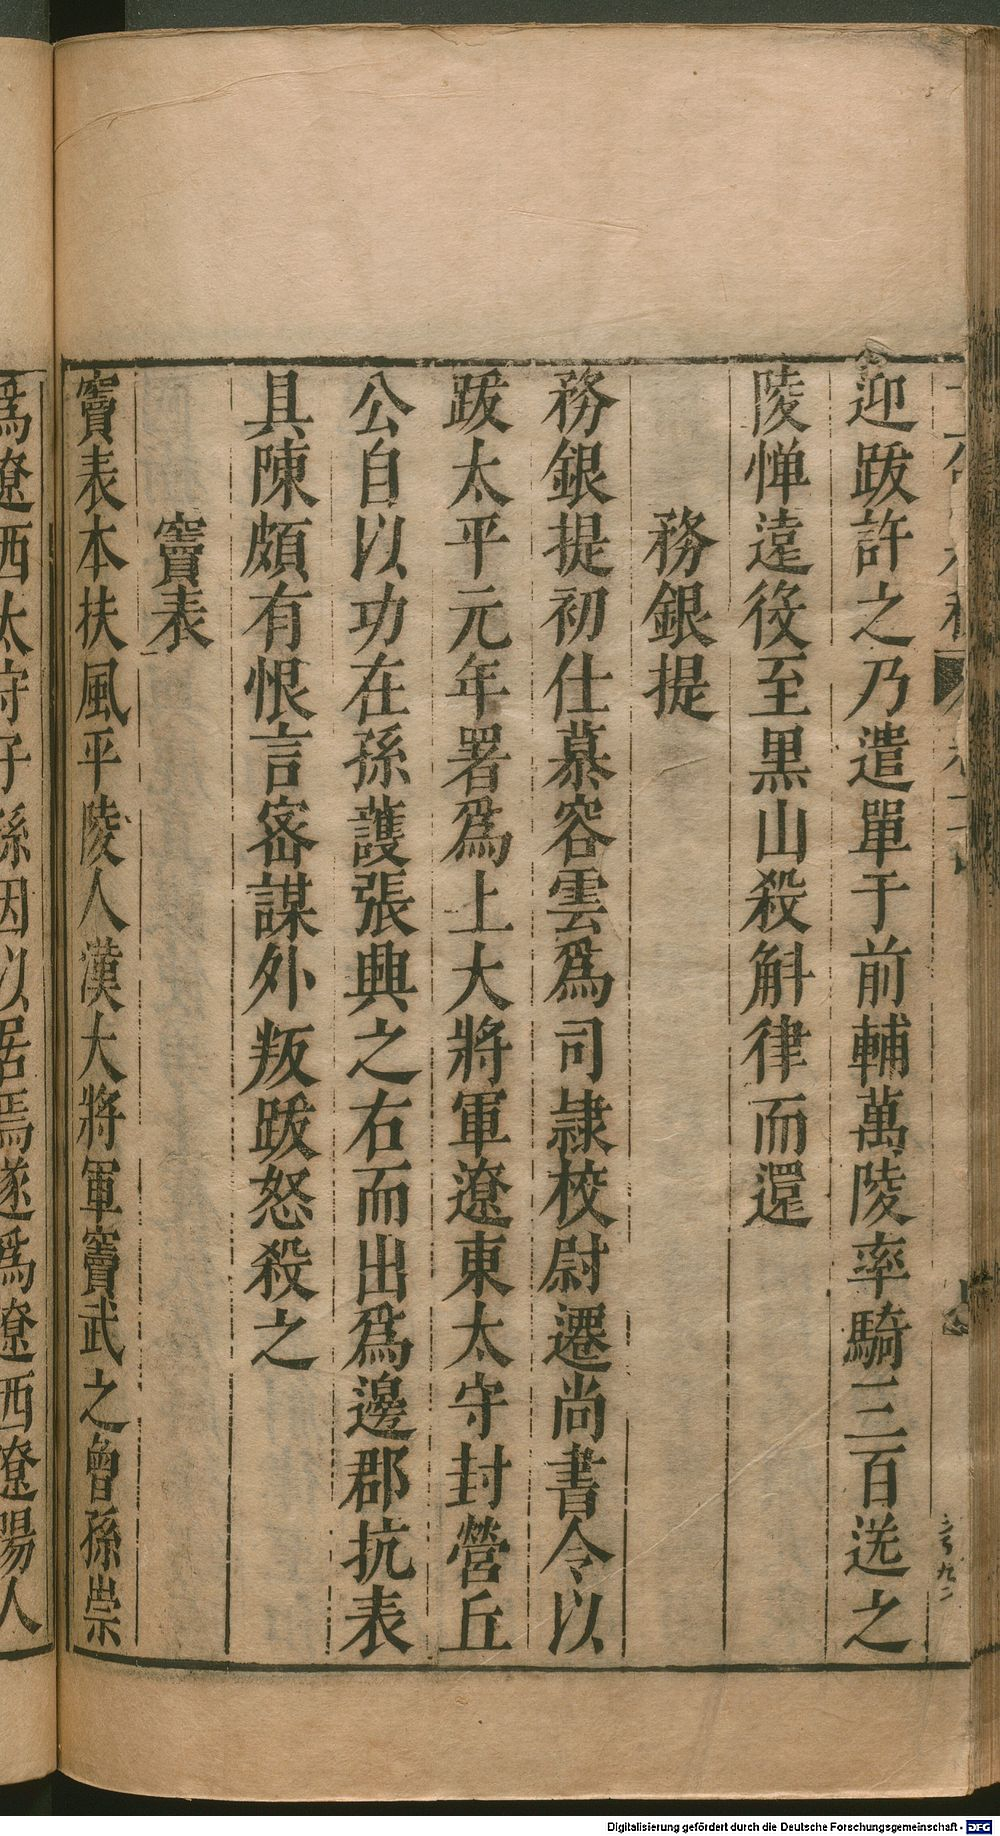 迎跋許之乃遣單于前輔萬陵率騎三百送之
陵憚遠役至黒山殺斛律而還
務銀提
務銀提初仕慕容雲爲司隷校尉遷尚書令以
跋太平元年署爲上大將軍遼東太守封營丘
公自以功在孫護張興之右而出爲邊郡抗表
具陳頗有恨言宻謀外叛跋怒殺之
竇表
竇表本扶風平陵人漢大將軍竇武之曾孫崇
爲遼西太守子孫因以居焉遂爲遼西遼陽人
Digitalisierung gefördert durch die Deutsche Forschungsgemeinschaft - DFG